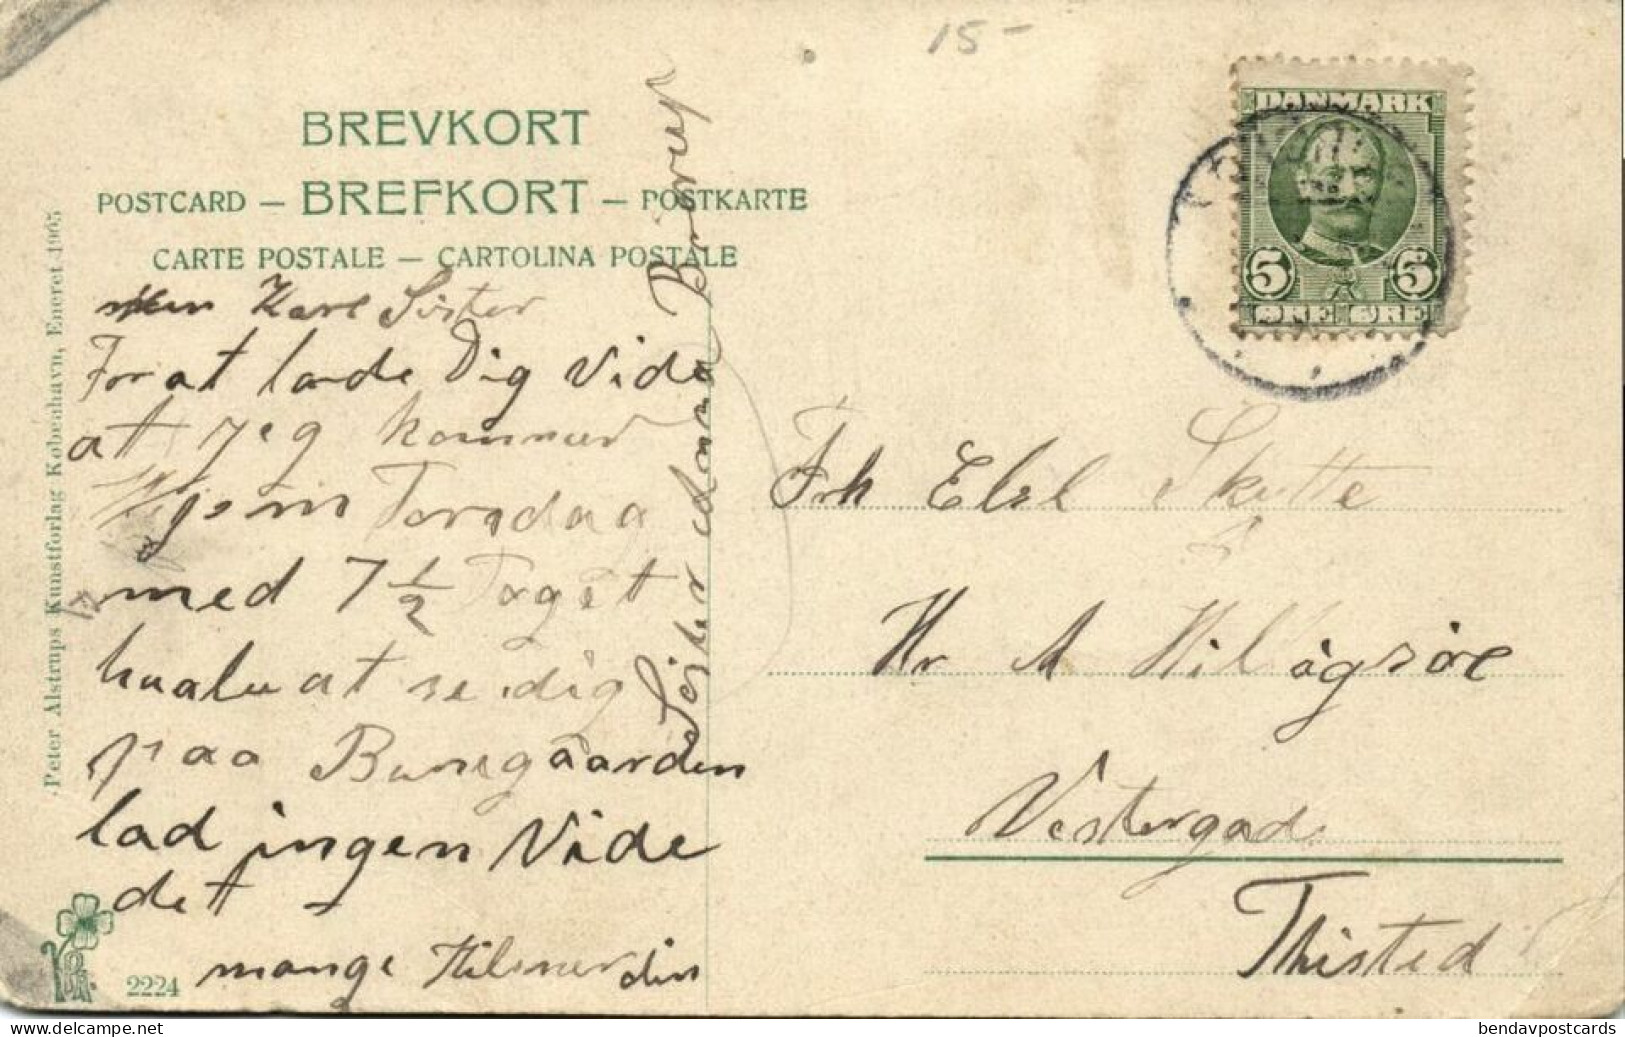 15-
BREVKORT
POSTCARD — BREFKORT — POSTKARTE
CARTE POSTALE — CARTOLINA POSTALE
Peter Alstrups Kunstforlag Kobenhavn, Eneret 1905
Kære Sister
For at lade Dig Vide
at jeg kommer
Hjem Torsdag
med 7 1/2 Toget
at se dig
paa Bamgaarden
lad ingen Vide
det
mange Hilsner din
Sister Anna Brørup
2224
DANMARK
5 5
ØRE ØRE
Frk Elsl Skøtte
Hr M
Vestergade
Thisted
bendavpostcards.com
bendavpostcards